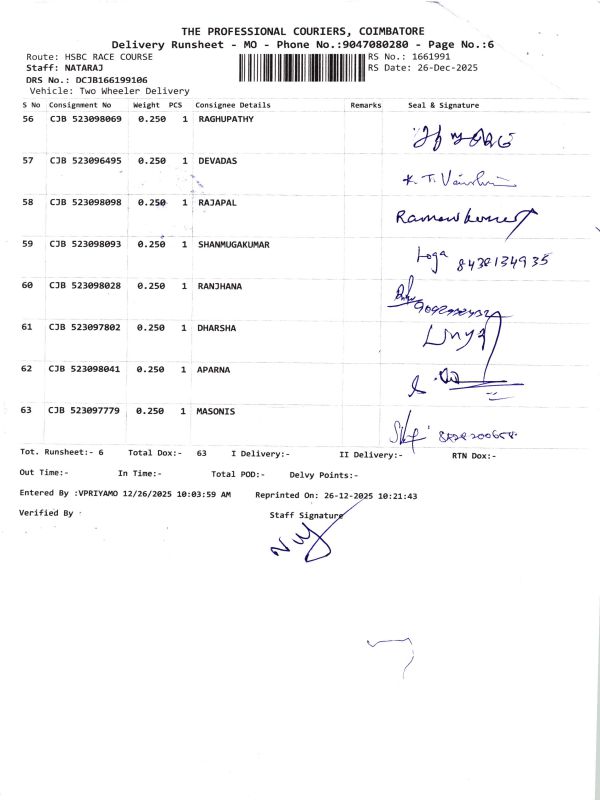 THE PROFESSIONAL COURIERS, COIMBATORE
Delivery Runsheet - MO - Phone No.:9047080280 - Page No.:6
Route: HSBC RACE COURSE RS No.: 1661991
Staff: NATARAJ RS Date: 26-Dec-2025
DRS No.: DCJB166199106
Vehicle: Two Wheeler Delivery
S No Consignment No Weight PCS Consignee Details Remarks Seal & Signature
56 CJB 523098069 0.250 1 RAGHUPATHY
57 CJB 523096495 0.250 1 DEVADAS
K. T.
58 CJB 523098098 0.250 1 RAJAPAL
59 CJB 523098093 0.250 1 SHANMUGAKUMAR
Loga 8438134935
60 CJB 523098028 0.250 1 RANJHANA
61 CJB 523097802 0.250 1 DHARSHA
62 CJB 523098041 0.250 1 APARNA
63 CJB 523097779 0.250 1 MASONIS
Tot. Runsheet:- 6 Total Dox:- 63 I Delivery:- II Delivery:- RTN Dox:-
Out Time:- In Time:- Total POD:- Delvy Points:-
Entered By :VPRIYAMO 12/26/2025 10:03:59 AM Reprinted On: 26-12-2025 10:21:43
Verified By Staff Signature